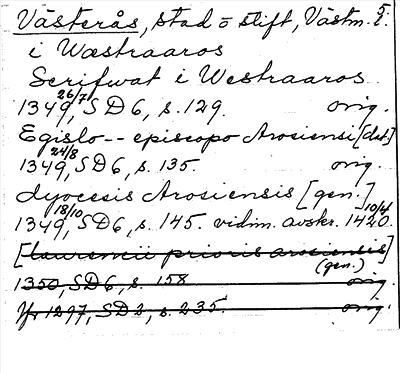 Västerås, stad o stift, Västm. l. 5.
i Wæstraaros
Scrifwat i Westraaros
1349 26/7, SD 6, s. 129. orig.
Egislo -- episcopo Arosiensi [dat]
1349 24/8, SD 6, s. 135. orig.
dyocesis Arosiensis [gen.]
1349 18/10, SD 6, s. 145. vidim. avskr. 1420 10/4
[Laurencii prioris arosiensis]
(gen.)
1350, SD 6, s. 158 orig.
Yr 1297, SD 2, s. 235. orig.